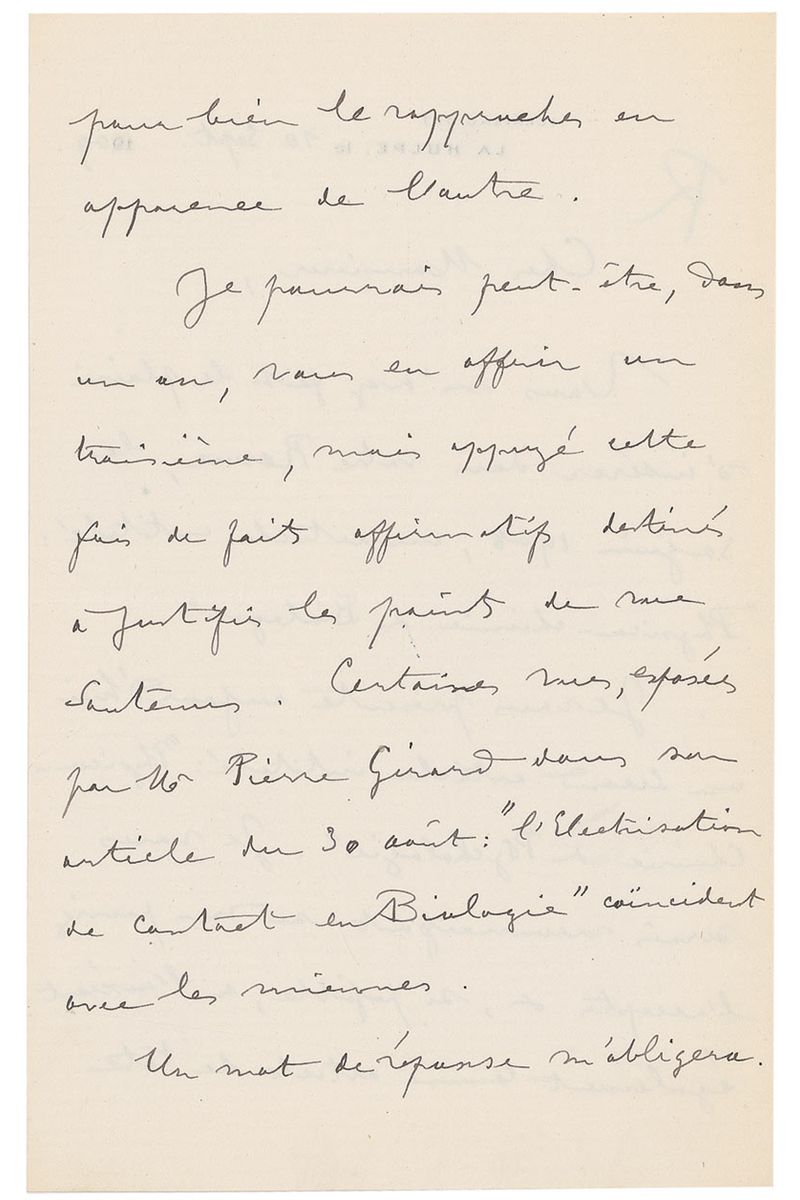 pour bien le rapprocher en
apparence de l'autre.
Je pourrais peut-être, dans
un an, vous en offrir un
troisième, mais appuyé cette
fois de faits affirmatifs destinés
à justifier les points de vue
soutenus. Certaines vues, exposées
par Mr Pierre Girard dans son
article du 30 août: "l'Electrisation
de contact en Biologie" coïncident
avec les miennes.
Un mot de réponse m'obligera.